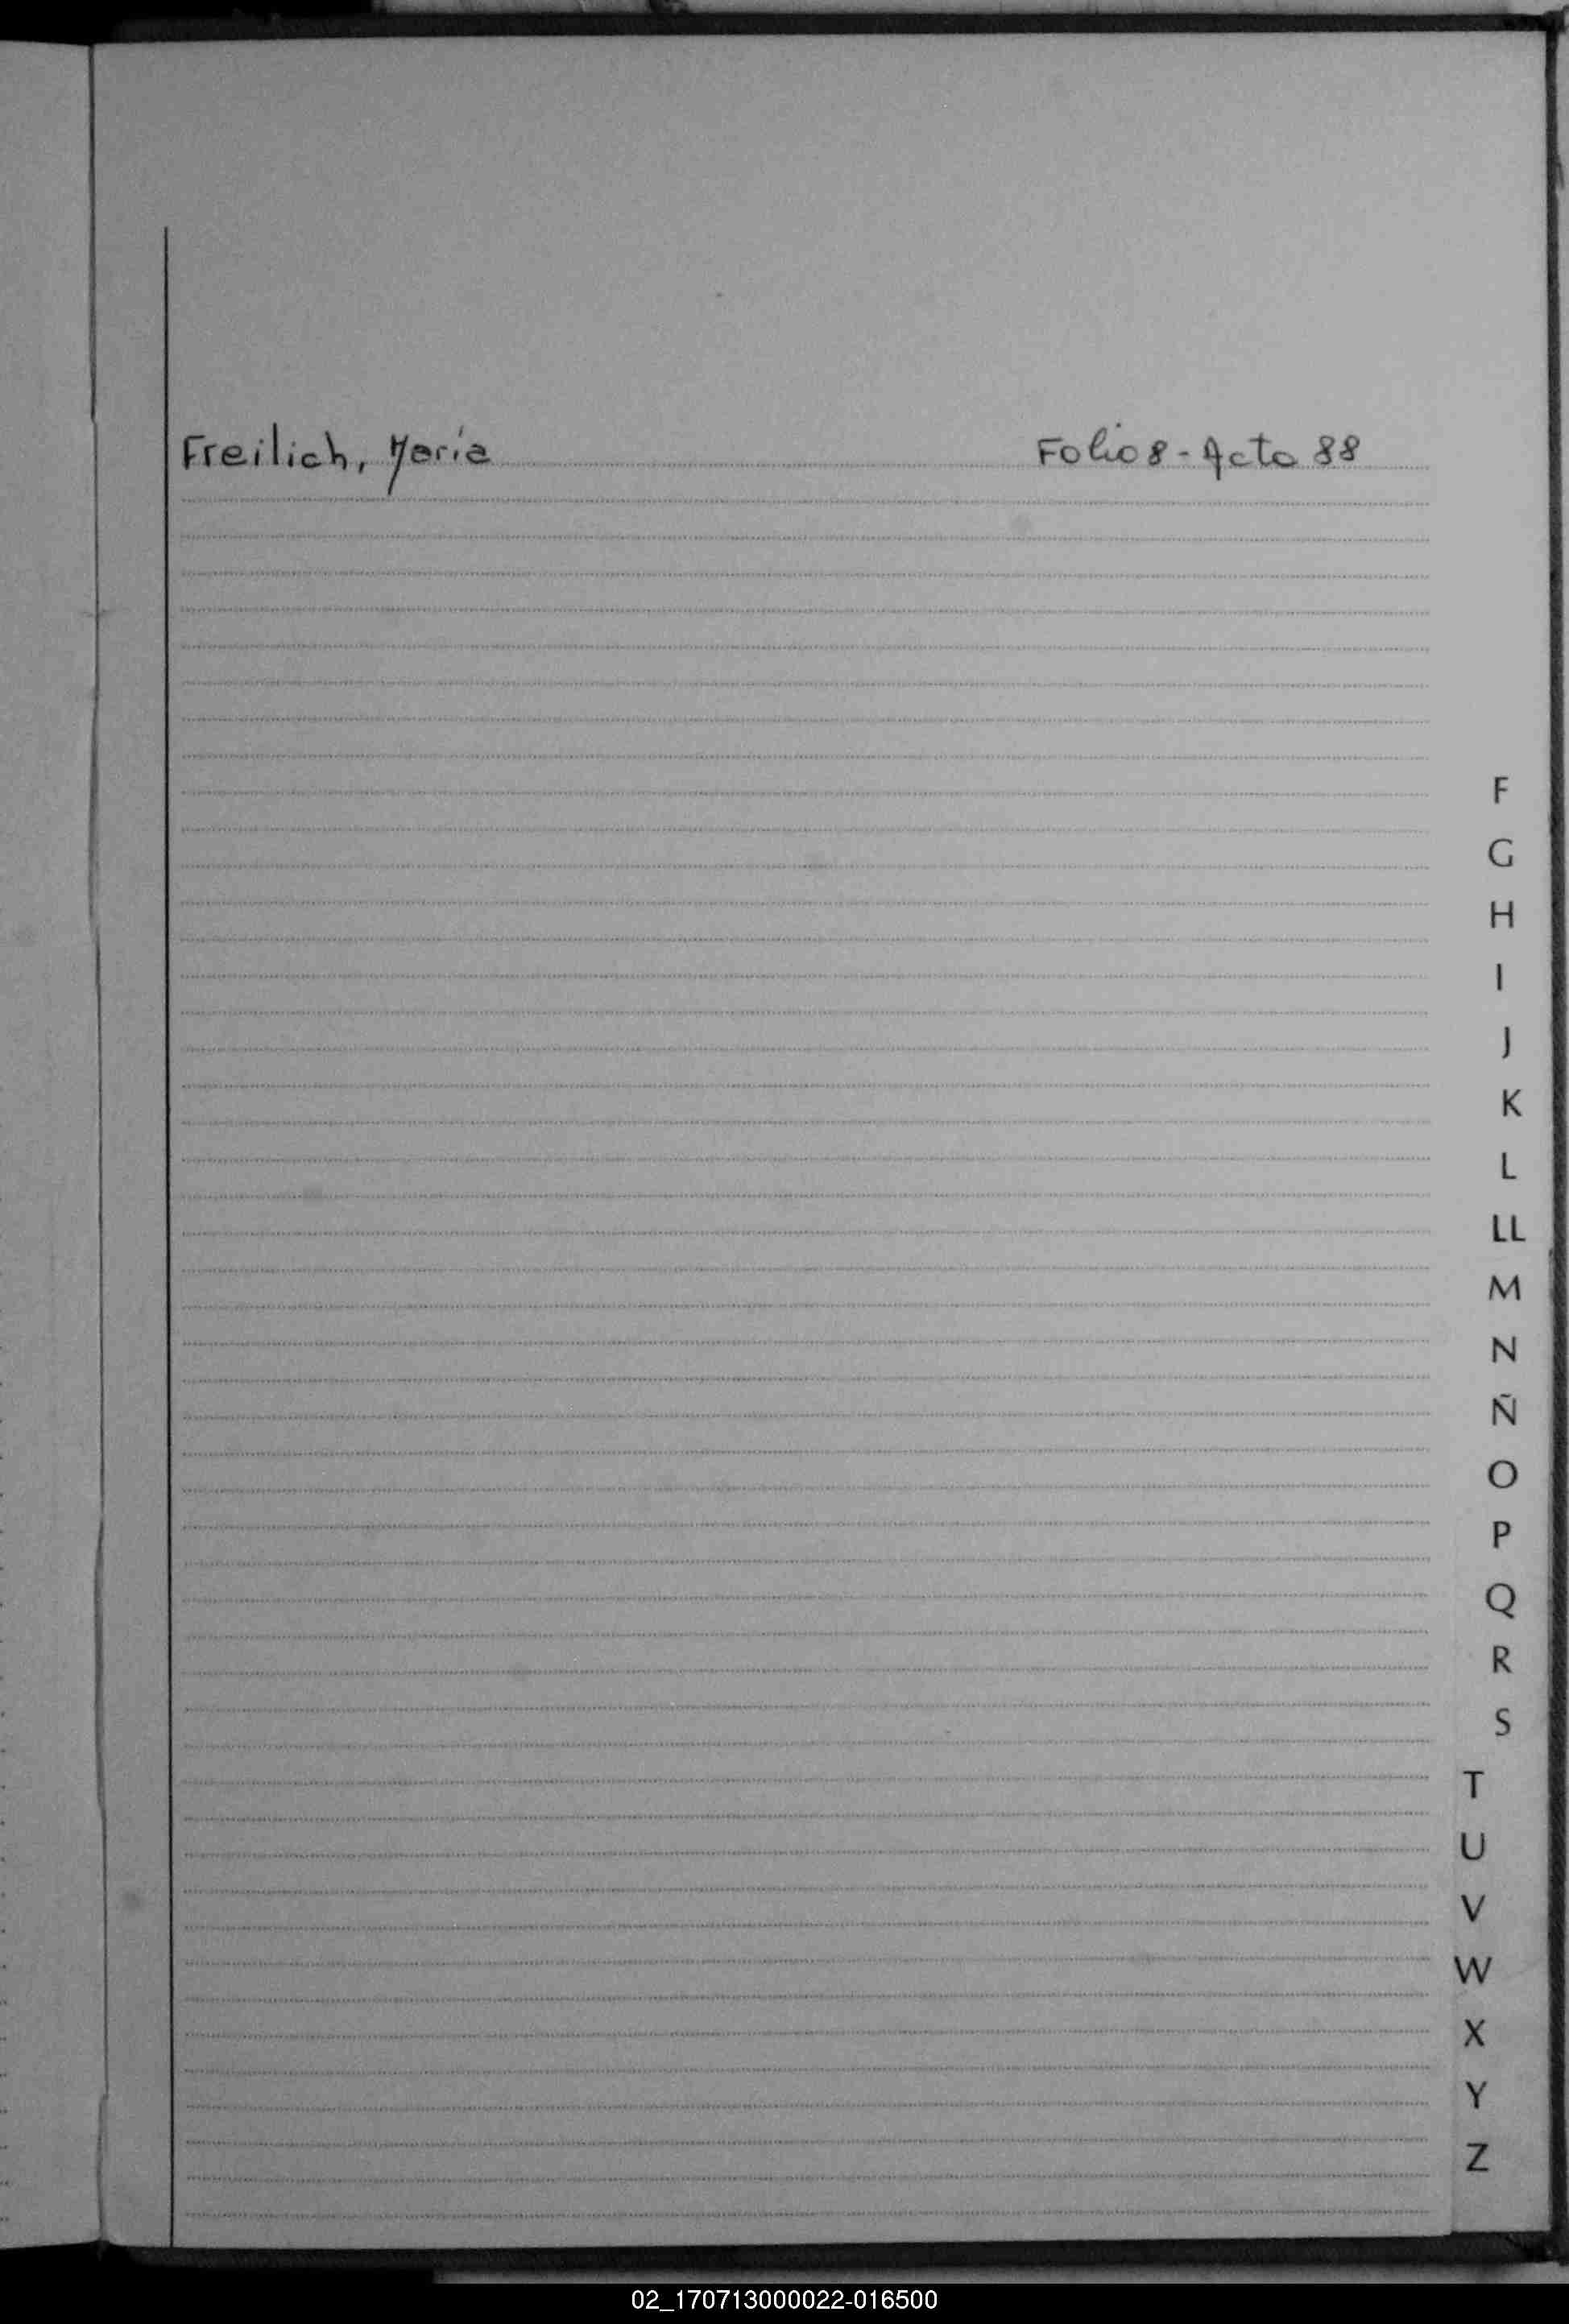 Freilich, María Folio 8 - Acta 88
F
G
H
I
J
K
L
LL
M
N
Ñ
O
P
Q
R
S
T
U
V
W
X
Y
Z
02_170713000022-016500